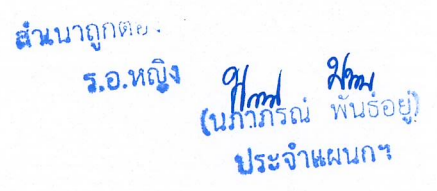 สำเนาถูกต้อง
ร.อ.หญิง
(นภาภรณ์ พันธ์อยู่)
ประจำแผนกฯ